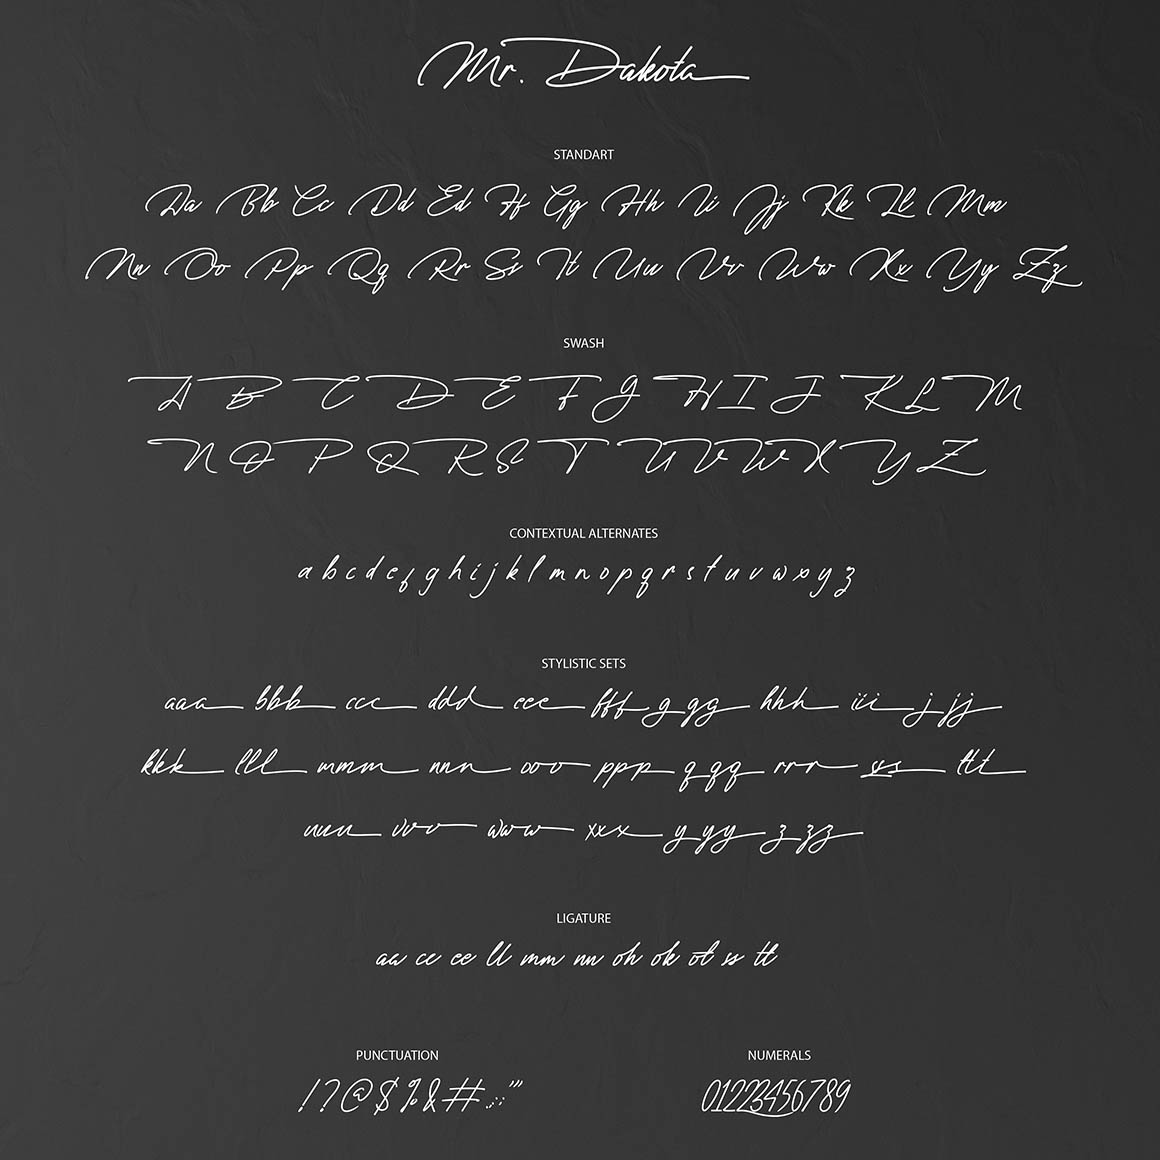 Mr. Dakota
STANDART
Aa Bb Cc Dd Ed Ff Gg Hh Ii Jj Kk Ll Mm
Nn Oo Pp Qq Rr Ss Tt Uu Vv Ww Xx Yy Zz
SWASH
A B C D E F G H I J K L M
N O P Q R S T U V W X Y Z
CONTEXTUAL ALTERNATES
a b c d e f g h i j k l m n o p q r s t u v w x y z
STYLISTIC SETS
aaa bbb ccc ddd eee fff g gg hhh iii j jj
kkk lll mmm nnn ooo ppp q qq rrr sss ttt
uuu vvv www xxx y yy z zz
LIGATURE
aa cc ee ll mm nn oh ok ot ss tt
PUNCTUATION NUMERALS
!?@$%&#.,:;'" 01223456789